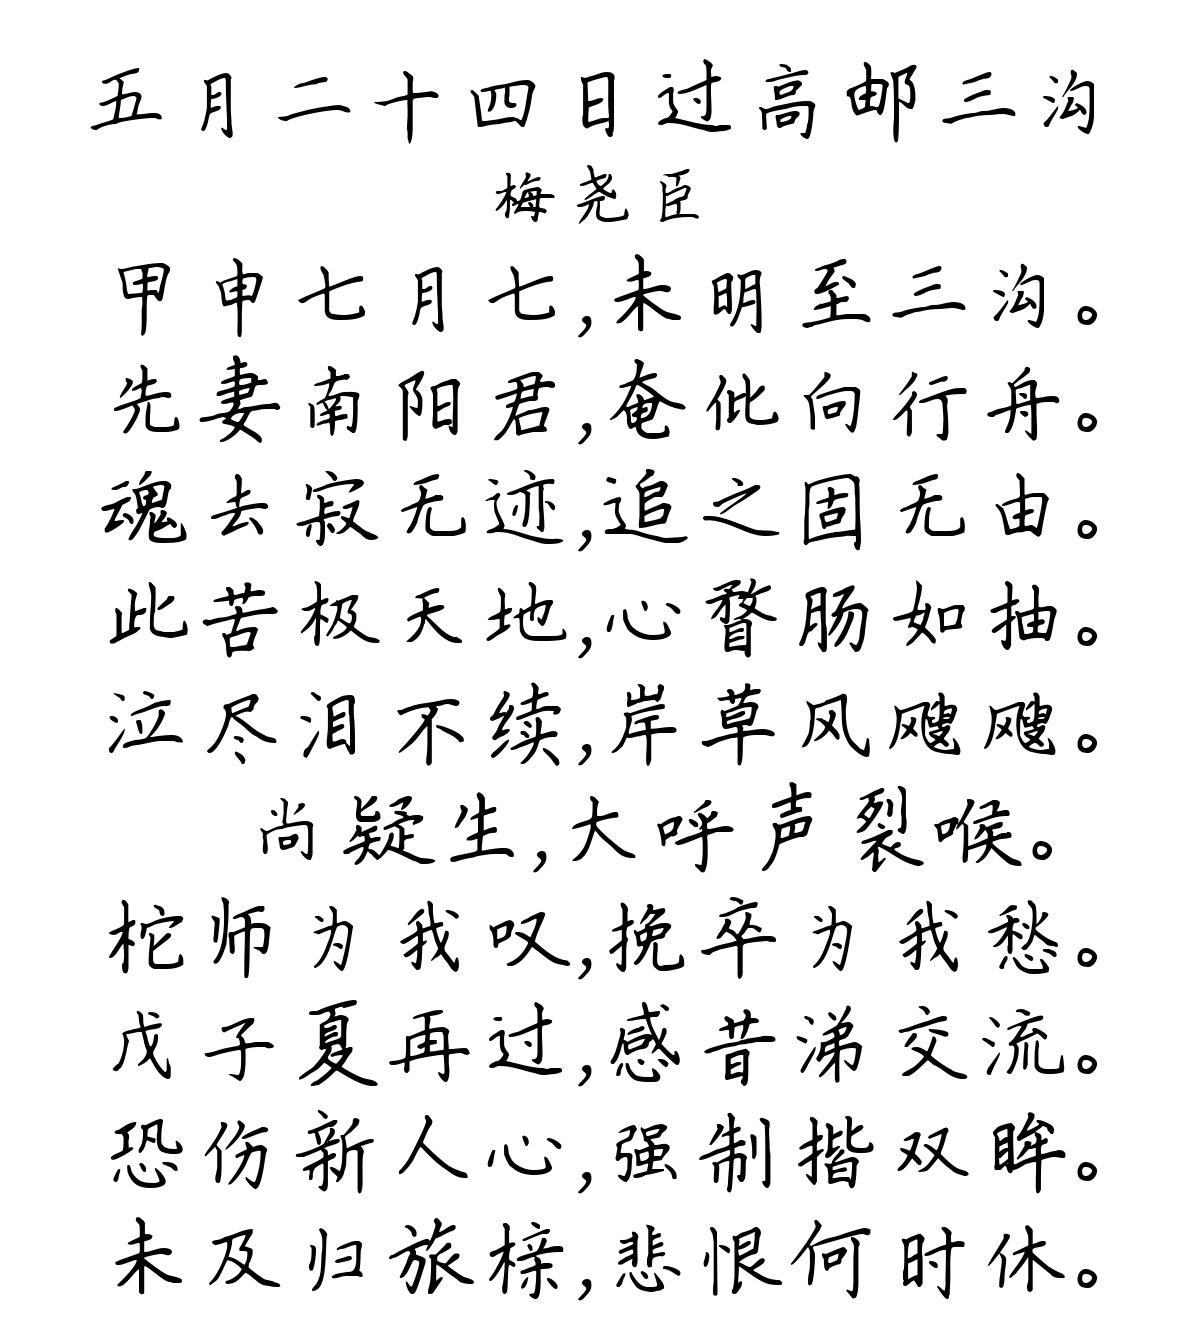 五月二十四日过高邮三沟
梅尧臣
甲申七月七,未明至三沟。
先妻南阳君,奄佌向行舟。
魂去寂无迹,追之固无由。
此苦极天地,心瞀肠如抽。
泣尽泪不续,岸草风飕飕。
尚疑生,大呼声裂喉。
柁师为我叹,挽卒为我愁。
戊子夏再过,感昔涕交流。
恐伤新人心,强制揩双眸。
未及归旅榇,悲恨何时休。